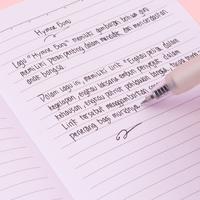 Hymne Guru
Lagu "Hymne Guru" memiliki gambaran bahwa guru
memiliki peran penting dalam mendidik dan mencerdaskan
anak bangsa.
Dalam lagu ini memiliki lirik "Engkau pelita dalam
kegelapan, engkau laksana embun penyejuk dalam
kehausan, engkau patriot pahlawan bangsa
Lirik tersebut menggambarkan
penerang bagi muridnya.